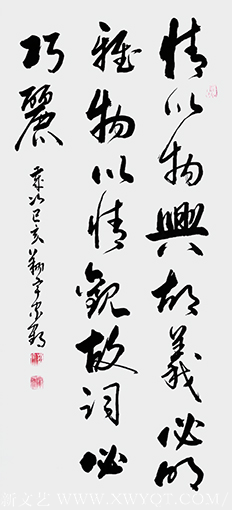 情以物興故義必明
雅物以情觀故詞必
巧麗
歲次己亥
新文艺 WWW.XWYOT.COM/